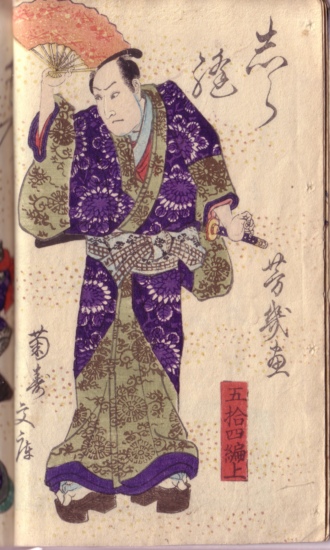 志ら
縫
芳幾画
五拾四編上
菊寿
文庫